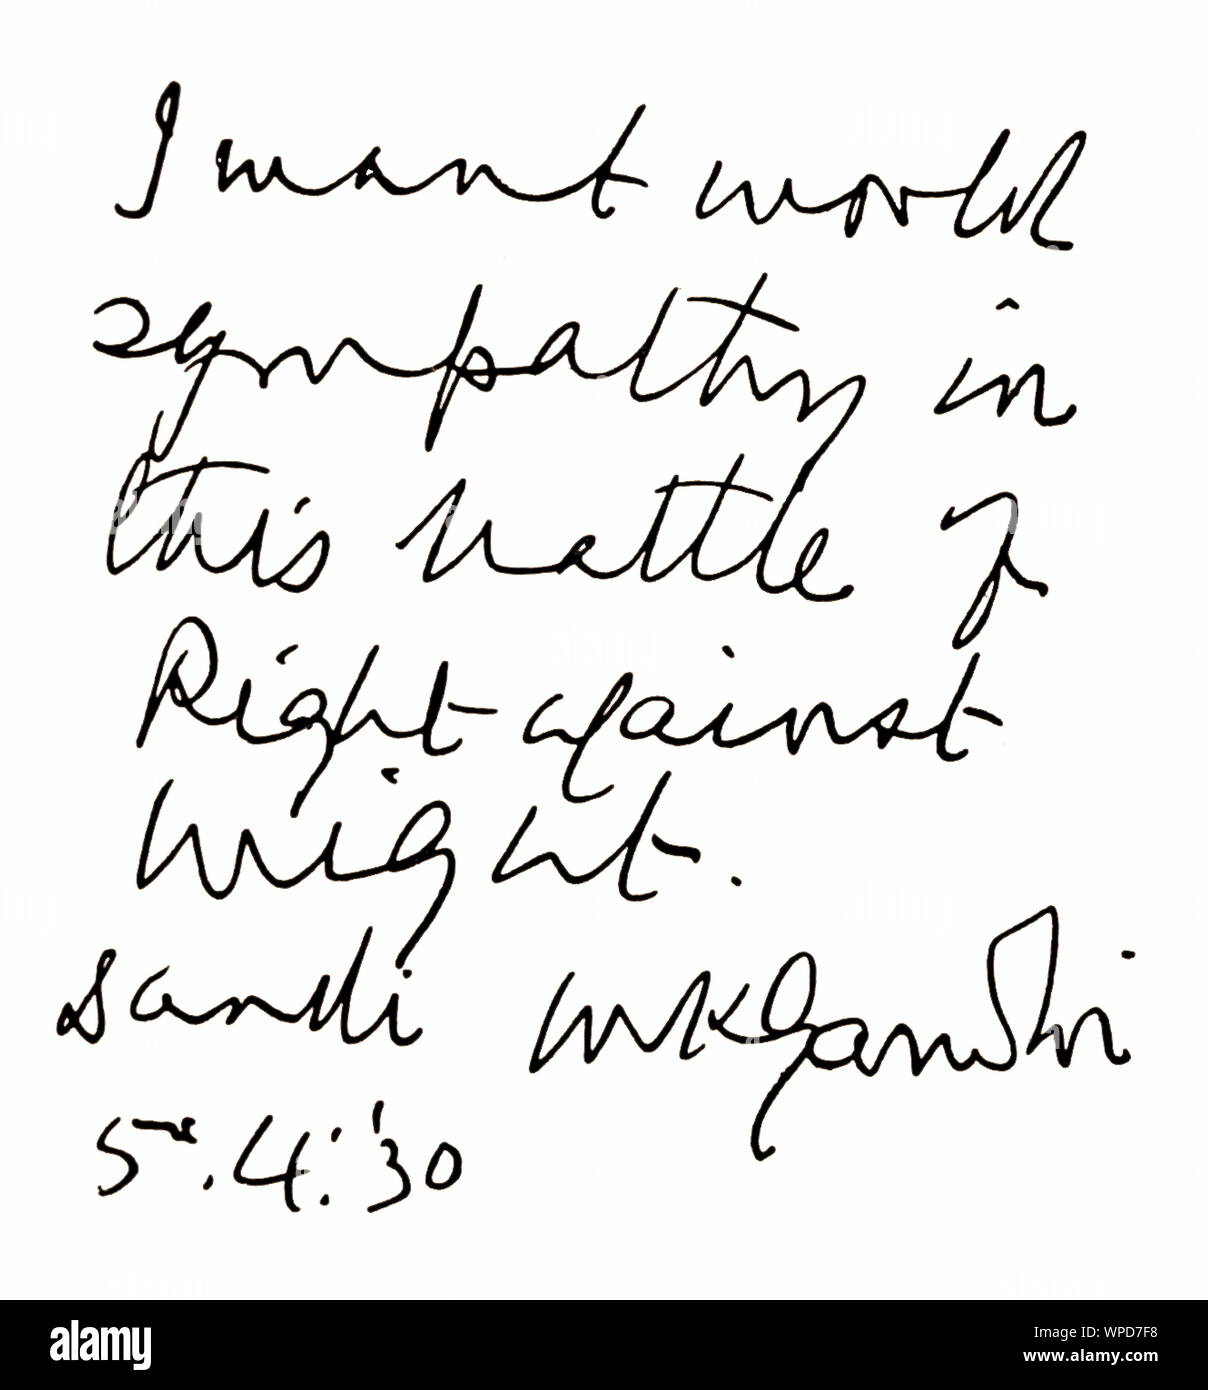 I want world
sympathy in
this battle of
Right against
might.
Dandi MKGandhi
5.4.'30
alamy
Image ID: WPD7F8
www.alamy.com